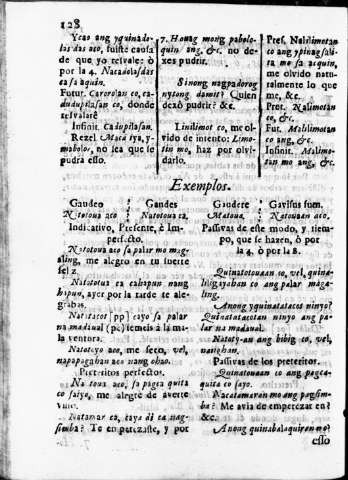 128
Ycao ang yquinado-
las das aco, fuiste causa
de que yo resvale: ò
por la 4. Nacadolasdas
ca sa aquin.
Futur. Carorolan co, ca-
dudupilasan co, donde
resvalarè
Infinit. Cadupilasan.
Rezel. Maca iya, y-
mabolos, no sea que se
pudra esso.
7. Houag mong pabolo-
quin ang, &c. no de-
xes pudrir.
Sinong nagpadorog
nytong damit? Quien
dexò pudrir? &c.
Linilimot co, me ol-
vido de intento: Limo-
tin mo, haz por olvi-
darlo.
Pres. Nalilimotan
co ang ypinagsali-
ta mo sa aquin,
me olvido natu-
ralmente lo que
me, &c.
Pret. Nalimotan
co, &c.
Fut. Malilimotan
co ang, &c.
Infinit. Malimo-
tan mo ang, &c.
Exemplos.
Gaudeo Gaudes Gaudere Gavisus sum.
Natotoua aco Natotoua ca, Matoua, Natouaan aco.
Indicativo, Presente, è Im-
perfecto.
Natotoua aco sa palar mo mag-
aling, me alegro en tu suerte
feliz.
Natototua ca cahapun nang
hapun, ayer por la tarde te ale-
grabas.
[pp] cayo sa palar
na madiual (pc) temeis à la ma-
la ventora.
Natotoyo aco, me seco, vel,
aco nang ohao.
Preteritos perfectos.
Na toua aco, sa pagca quita
co saiyo, me alegrè de averte
visto.
Natamar ca, caya di ca nag-
simba? Te emperezaste, y por
Passivas de este modo, y tiem-
po, que se hazen, ò por
la 4. ò por la 8.
Quinatotouaan co, vel, quina-
liligayahan co ang palar maga-
ling.
Anong yquinatatacot ninyo?
Quinatatacotan ninyo ang pa-
lar na madiual.
Natoty-an ang bibig co, vel,
nauohan.
Passivas de los preteritos.
Quinatouaan co ang pagca-
quita co sayo.
Nacatamaran mo ang pagsim-
ba? Me avia de emperezar en?
&c.
Anong quinabalaquiran mo?
esso